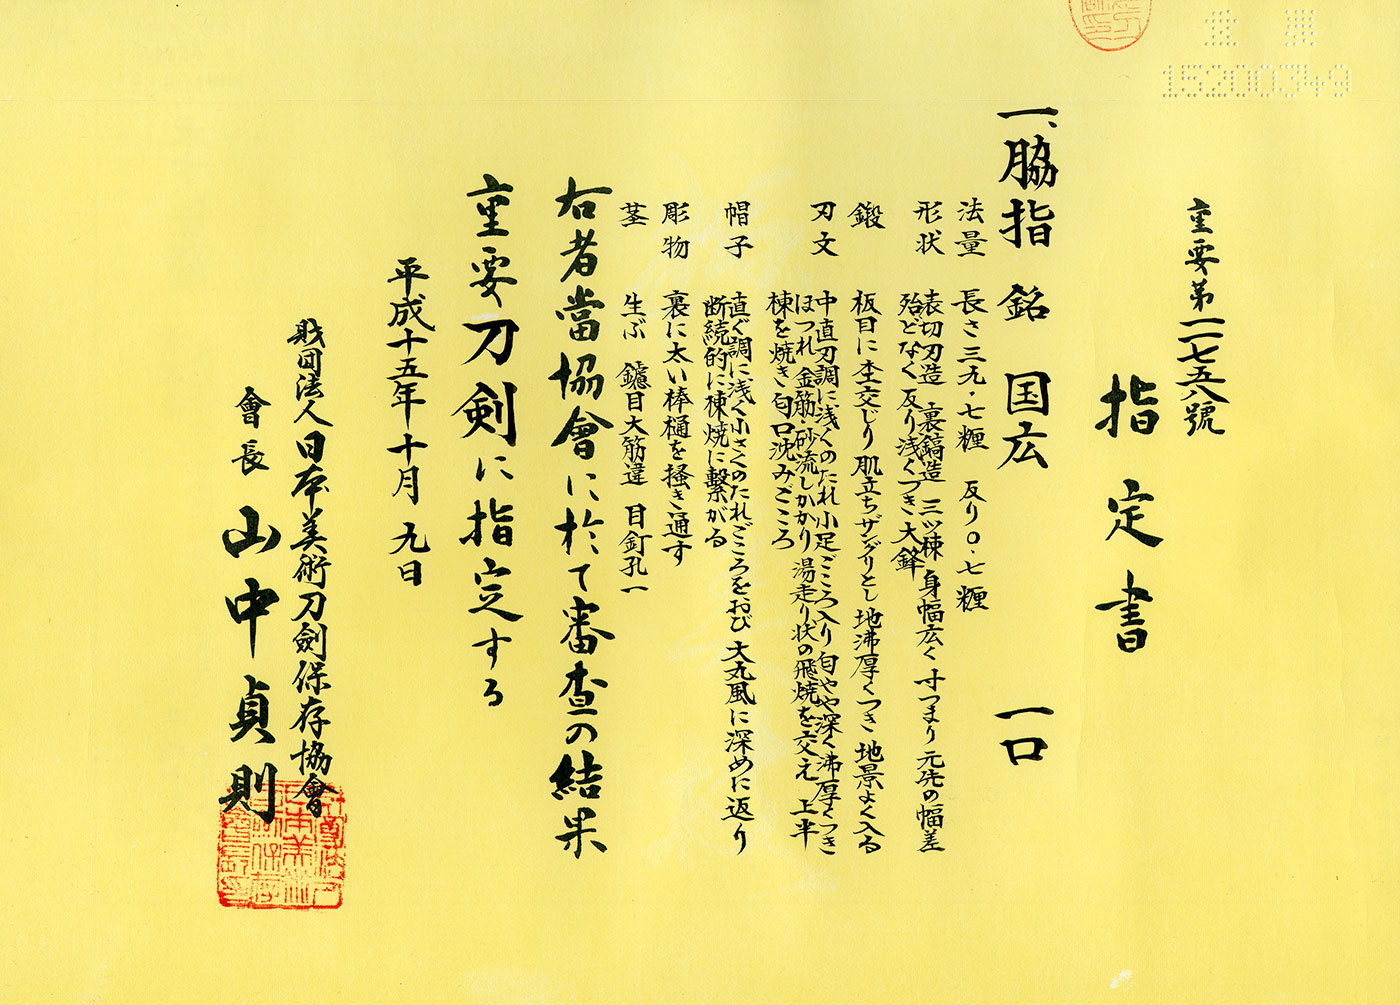 重要第一一七五八號
指定書
一、脇指 銘 国広 一口
法量 長さ三九・七糎 反り〇・七糎
形状 表切刃造 裏鎬造 三ツ棟 身幅広く 寸つまり 元先の幅差
殆どなく 反り浅くつき 大鋒
鍛 板目に杢交じり 肌立ちザングリとし 地沸厚くつき 地景よく入る
刃文 中直刃調に浅くのたれ 小足ごころ入り 匂やや深く 沸厚くつき
ほつれ 金筋・砂流しかかり 湯走り状の飛焼を交え 上半
棟を焼き 匂口沈みごころ
帽子 直ぐ調に浅く小さくのたれごころをおび 大丸風に深めに返り
断続的に棟焼に繋がる
彫物 裏に太い棒樋を掻き通す
茎 生ぶ 鑢目大筋違 目釘孔一
右者當協會に於て審査の結果
重要刀剣に指定する
平成十五年十月九日
財団法人日本美術刀劍保存協會
會長 山中貞則
15200349